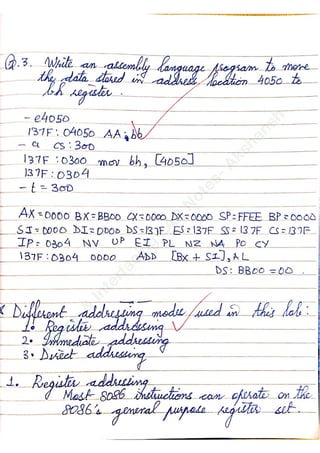 Q.3. Write an assembly language program to move
the data stored in address location 4050 to
bh register.
- e4050
137F:04050 AA;bb
- a CS:300
137F:0300 mov bh, [4050]
137F:0304
- t = 300
AX=0000 BX=BB00 CX=0000 DX=0000 SP=FFEE BP=0000
SI=0000 DI=0000 DS=137F ES=137F SS=137F CS=137F
IP=0304 NV UP EI PL NZ NA PO CY
137F:0304 0000 ADD [BX+SI], AL
DS:BB00=00.
* Different addressing modes used in this lab:
1. Register addressing
2. Immediate addressing
3. Direct addressing
1. Register addressing
Most 8086 instructions can operate on the
8086's general purpose register set.